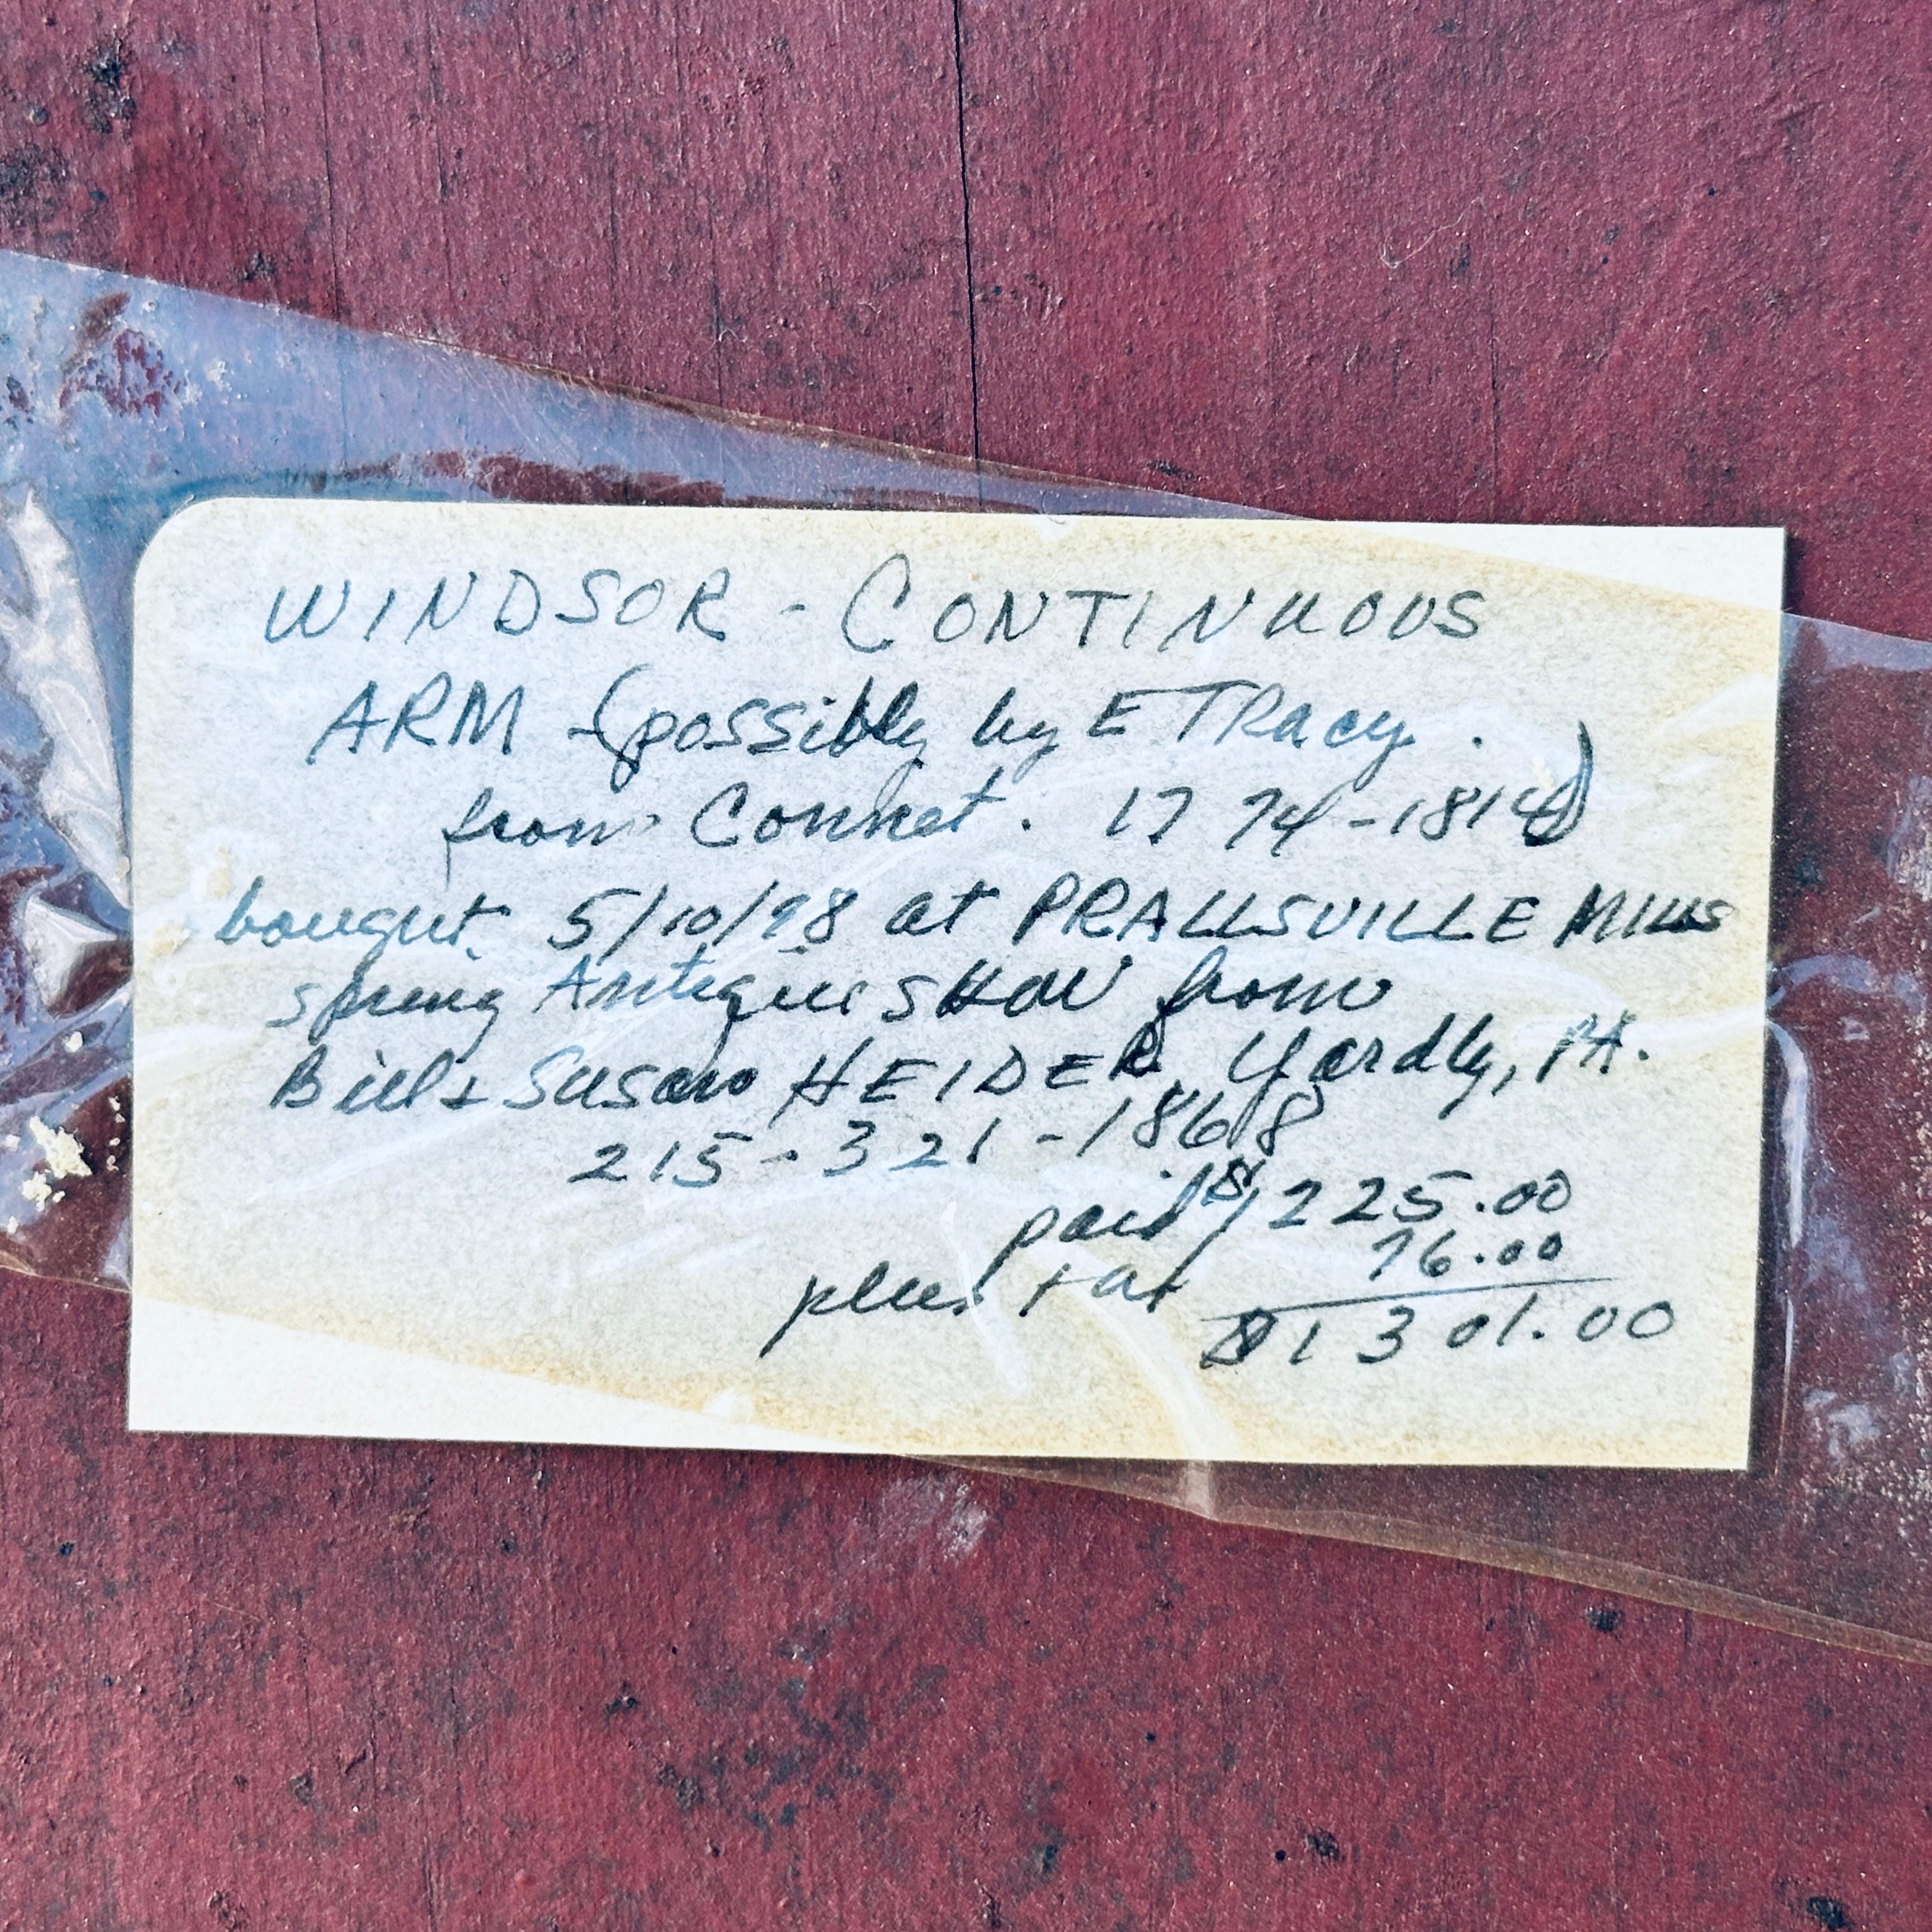 WINDSOR - CONTINUOUS
ARM - (possibly by E TRacy.
from Connet. 1774-1814)
bought 5/10/98 at PRALLSVILLE MILLS
spring Antique SHOW from
Bill + Susan HEIDER Yardly, PA.
215-321-1868
paid $1225.00
plus tax 76.00
$1301.00